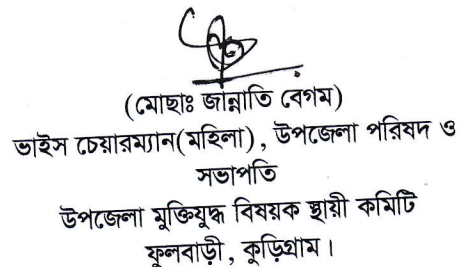 (মোছাঃ জান্নাতি বেগম)
ভাইস চেয়ারম্যান(মহিলা), উপজেলা পরিষদ ও
সভাপতি
উপজেলা মুক্তিযুদ্ধ বিষয়ক স্থায়ী কমিটি
ফুলবাড়ী, কুড়িগ্রাম।